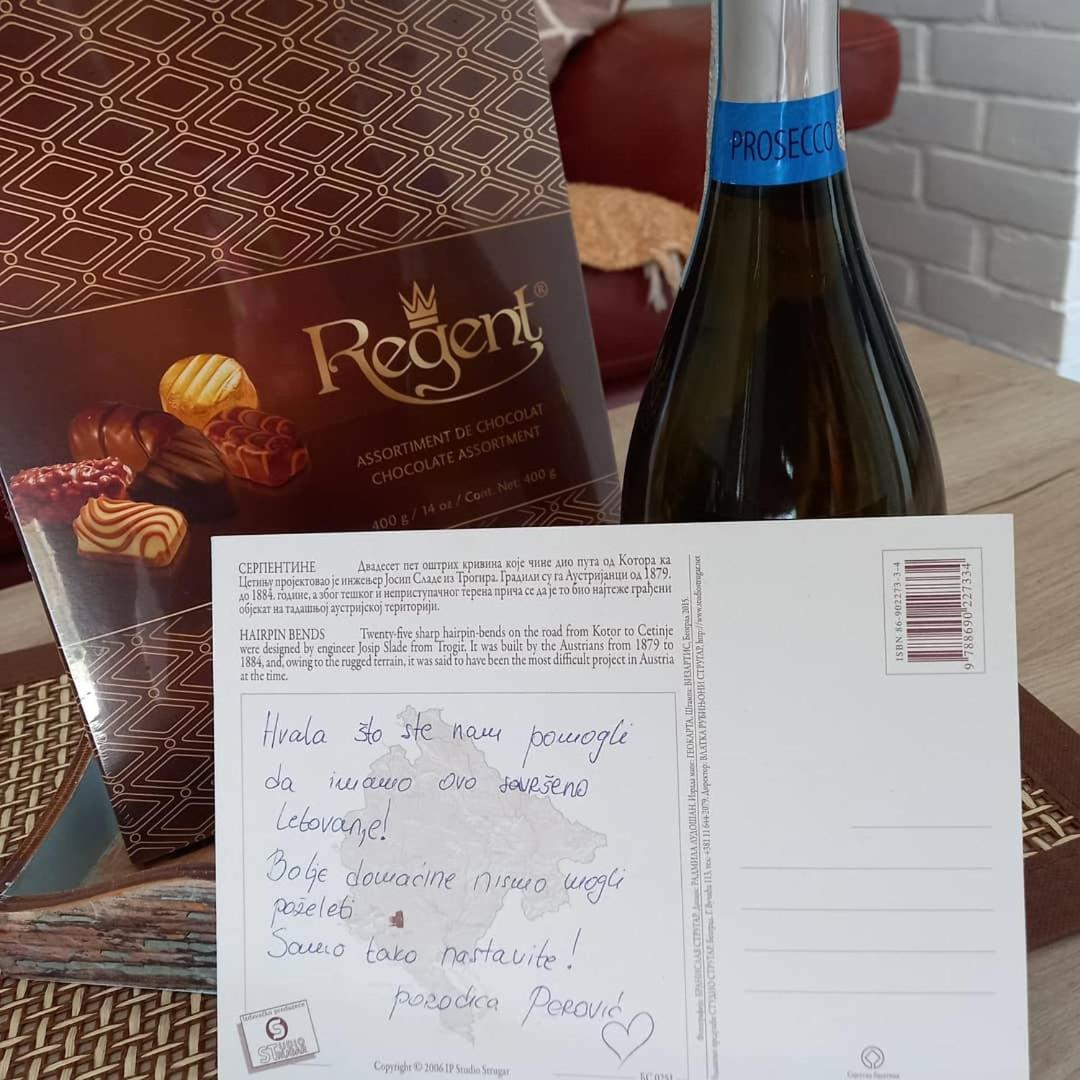 PROSECCO
Regent®
ASSORTIMENT DE CHOCOLAT
CHOCOLATE ASSORTMENT
400 g / 14 oz / Cont. Net: 400 g
СЕРПЕНТИНЕ Двадесет пет оштрих кривина које чине дио пута од Котора ка
Цетињу пројектовао је инжењер Јосип Сладе из Трогира. Градили су га Аустријанци од 1879.
до 1884. године, а због тешког и неприступачног терена прича се да је то био најтеже грађени
објекат на тадашњој аустријској територији.
HAIRPIN BENDS Twenty-five sharp hairpin-bends on the road from Kotor to Cetinje
were designed by engineer Josip Slade from Trogir. It was built by the Austrians from 1879 to
1884, and, owing to the rugged terrain, it was said to have been the most difficult project in Austria
at the time.
Hvala što ste nam pomogli
da imamo ovo savršeno
Letovanje!
Bolje domaćine nismo mogli
poželeti
Samo tako nastavite!
porodica Perović
Izdavačko preduzeće
S
STUDIO
STRUGAR
Copyright © 2006 IP Studio Strugar
ISBN 86-902273-3-4
9 788690 227334